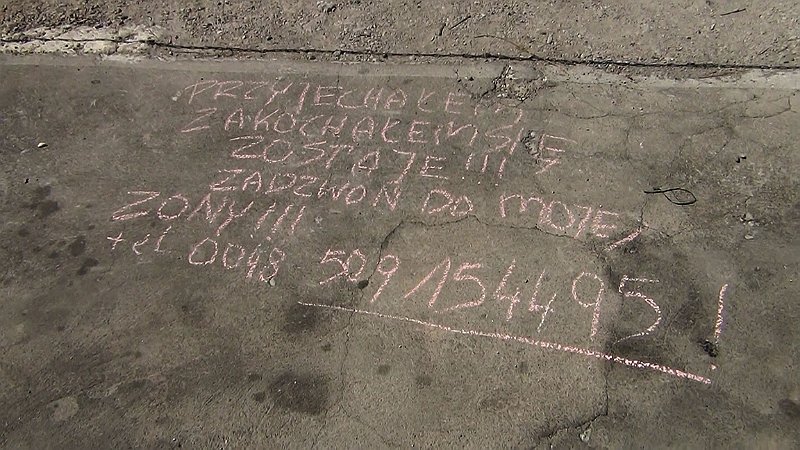 PRZYJECHAŁEM,
ZAKOCHAŁEM SIĘ
ZOSTAJĘ!!!
ZADZWOŃ DO MOJEJ
ŻONY!!!
tel 0048 509 154495!